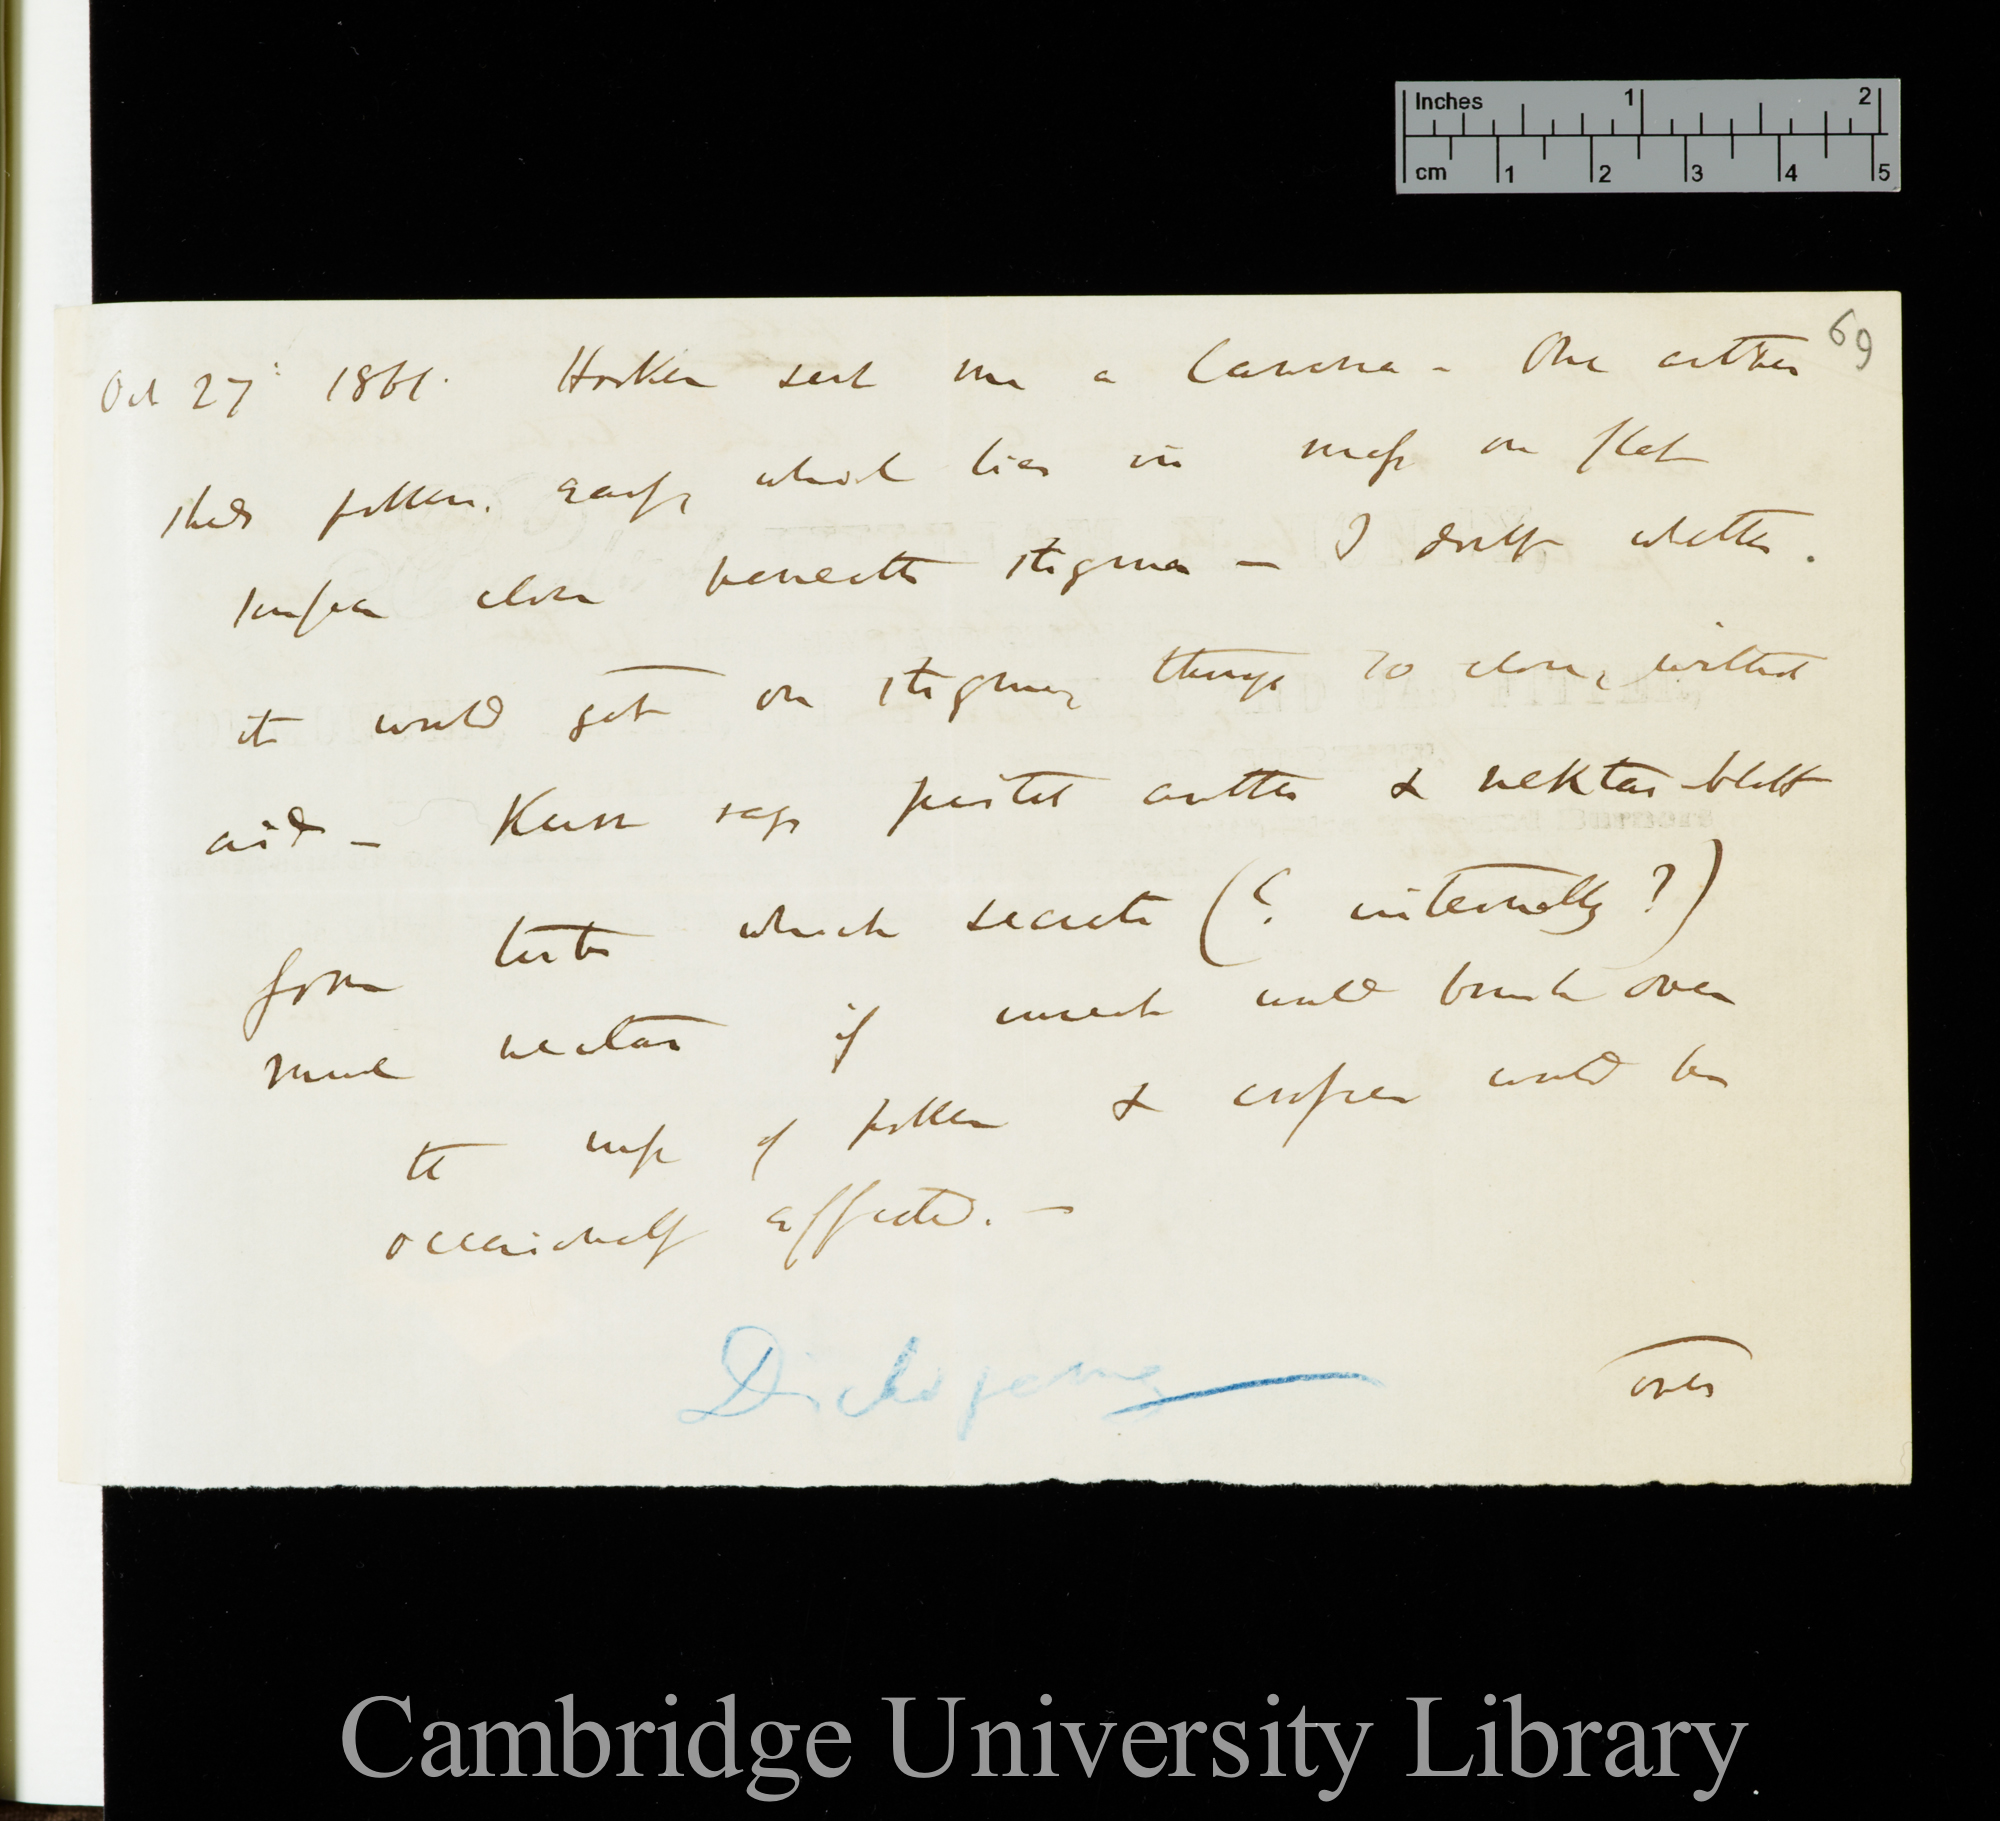 Inches 1 2
cm 1 2 3 4 5
69
Oct 27. 1861. Hooker sent me a Canna - One anther
sheds pollen, early, which lies in mass on flat
surface close beneath stigma — I doubt whether
it would get on stigma, though so close, without
aid — Kurr says pistil anther & nektar-blatt
form tube which secretes (? internally?)
much nectar if insect would brush over
the mass of pollen & crosses would be
occasionally effected. —
Dichogamy
over
Cambridge University Library